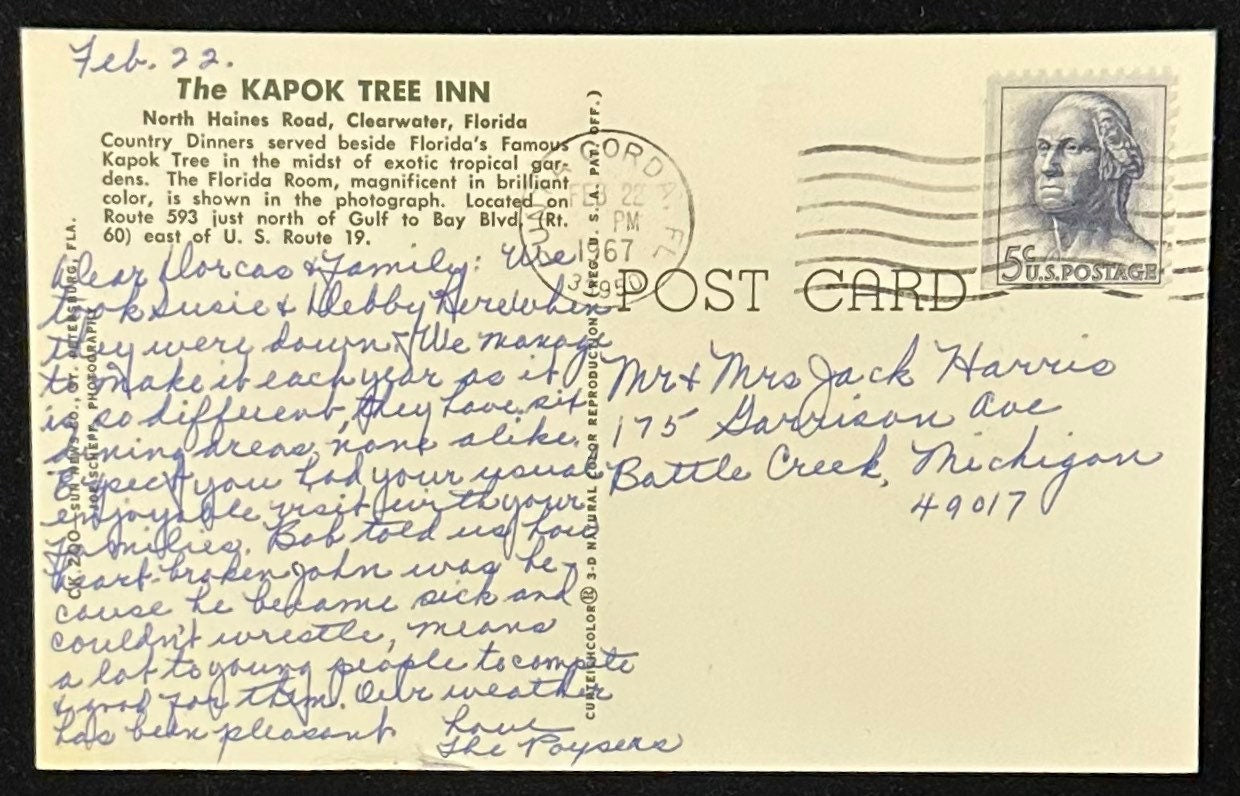 Feb. 22.
The KAPOK TREE INN
North Haines Road, Clearwater, Florida
Country Dinners served beside Florida's Famous
Kapok Tree in the midst of exotic tropical gar-
dens. The Florida Room, magnificent in brilliant
color, is shown in the photograph. Located on
Route 593 just north of Gulf to Bay Blvd. (Rt.
60) east of U. S. Route 19.
Dear Dorcas & Family: We
took Susie & Debby here when
they were down. We manage
to make it each year as it
is so different, they have six
dining areas, none alike.
Expect you had your usual
enjoyable visit with your
families. Bob told us how
heart-broken John was be-
cause he became sick and
couldn't wrestle, means
a lot to young people to compete
& good for them. Our weather
has been pleasant
Love
The Poysers
CK.200—SUN NEWS CO., ST. PETERSBURG, FLA.
JOE SCHEFF PHOTOGRAPHY
CURTEICHCOLOR® 3-D NATURAL COLOR REPRODUCTION (REG. U. S. A. PAT. OFF.)
PUNTA GORDA, FL
FEB 22
PM
1967
33950
5¢ U.S. POSTAGE
POST CARD
Mr & Mrs Jack Harris
175 Garrison Ave
Battle Creek, Michigan
49017